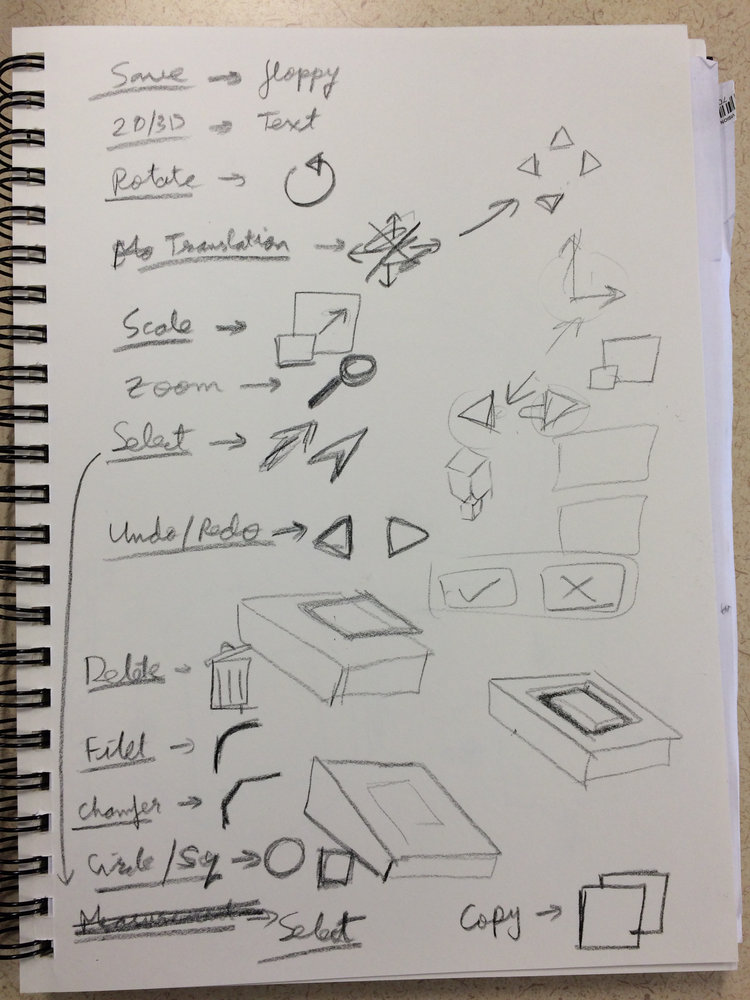 Save → floppy
2D/3D → Text
Rotate →
Translation →
Scale →
Zoom →
Select →
Undo/Redo →
Delete -
Fillet →
Chamfer →
Circle/Sq →
→ Select
Copy →